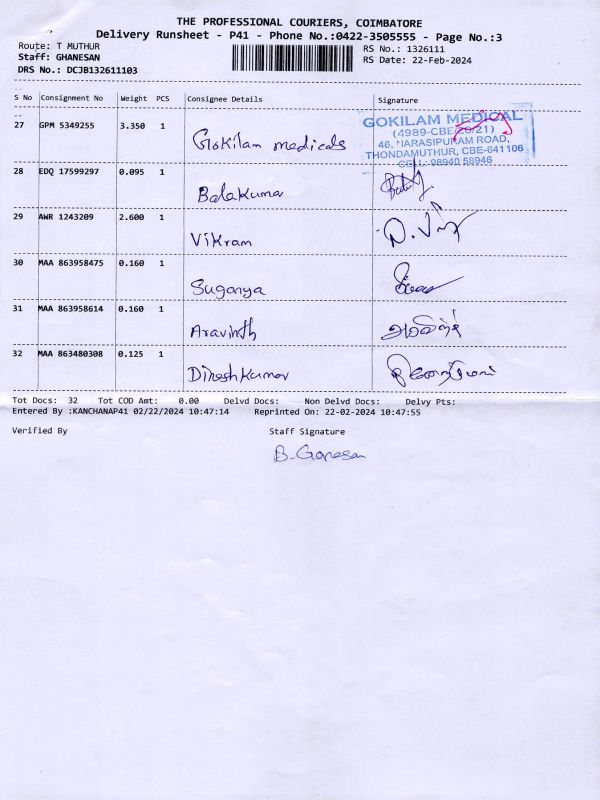 THE PROFESSIONAL COURIERS, COIMBATORE
Delivery Runsheet - P41 - Phone No.:0422-3505555 - Page No.:3
Route: T MUTHUR RS No.: 1326111
Staff: GHANESAN RS Date: 22-Feb-2024
DRS No.: DCJB132611103
S No Consignment No Weight PCS Consignee Details Signature
27 GPM 5349255 3.350 1 Gokilam medicals
GOKILAM MEDICAL
(4989-CBE/20/21)
46, NARASIPURAM ROAD,
THONDAMUTHUR, CBE-641106
CELL: 98940 58946
28 EDQ 17599297 0.095 1 Balakumar
29 AWR 1243209 2.600 1 Vikram
30 MAA 863958475 0.160 1 Suganya
31 MAA 863958614 0.160 1 Aravinth அரவிந்த்
32 MAA 863480308 0.125 1 Dinesh Kumar
Tot Docs: 32 Tot COD Amt: 0.00 Delvd Docs: Non Delvd Docs: Delvy Pts:
Entered By :KANCHANAP41 02/22/2024 10:47:14 Reprinted On: 22-02-2024 10:47:55
Verified By Staff Signature
B. Ganesan